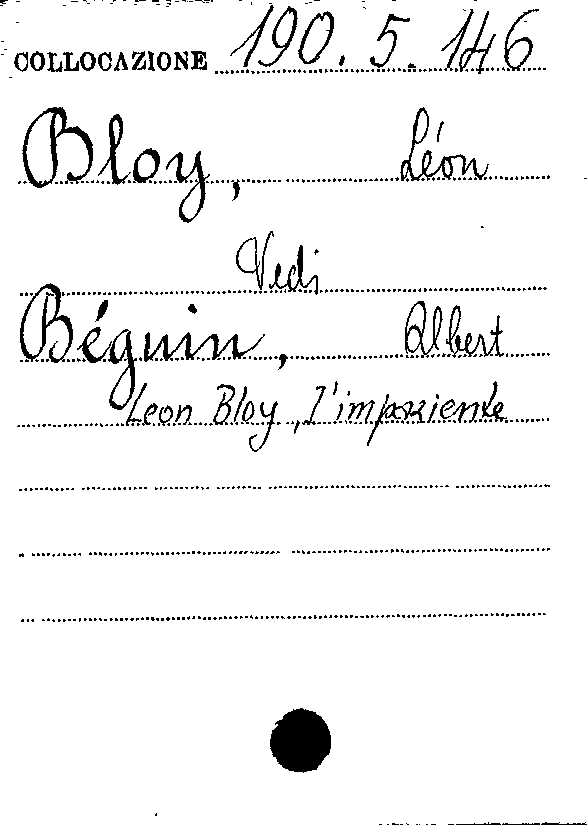 COLLOCAZIONE 190. 5. 146
Bloy, Léon
Vedi
Béguin, Albert
Leon Bloy, l'impaziente